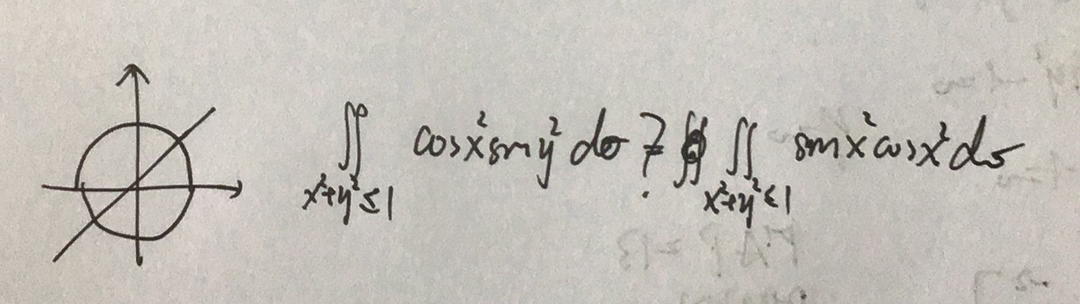 ∬_{x²+y²≤1} cosx²siny² dσ ? ∬_{x²+y²≤1} sinx²cosx² dσ